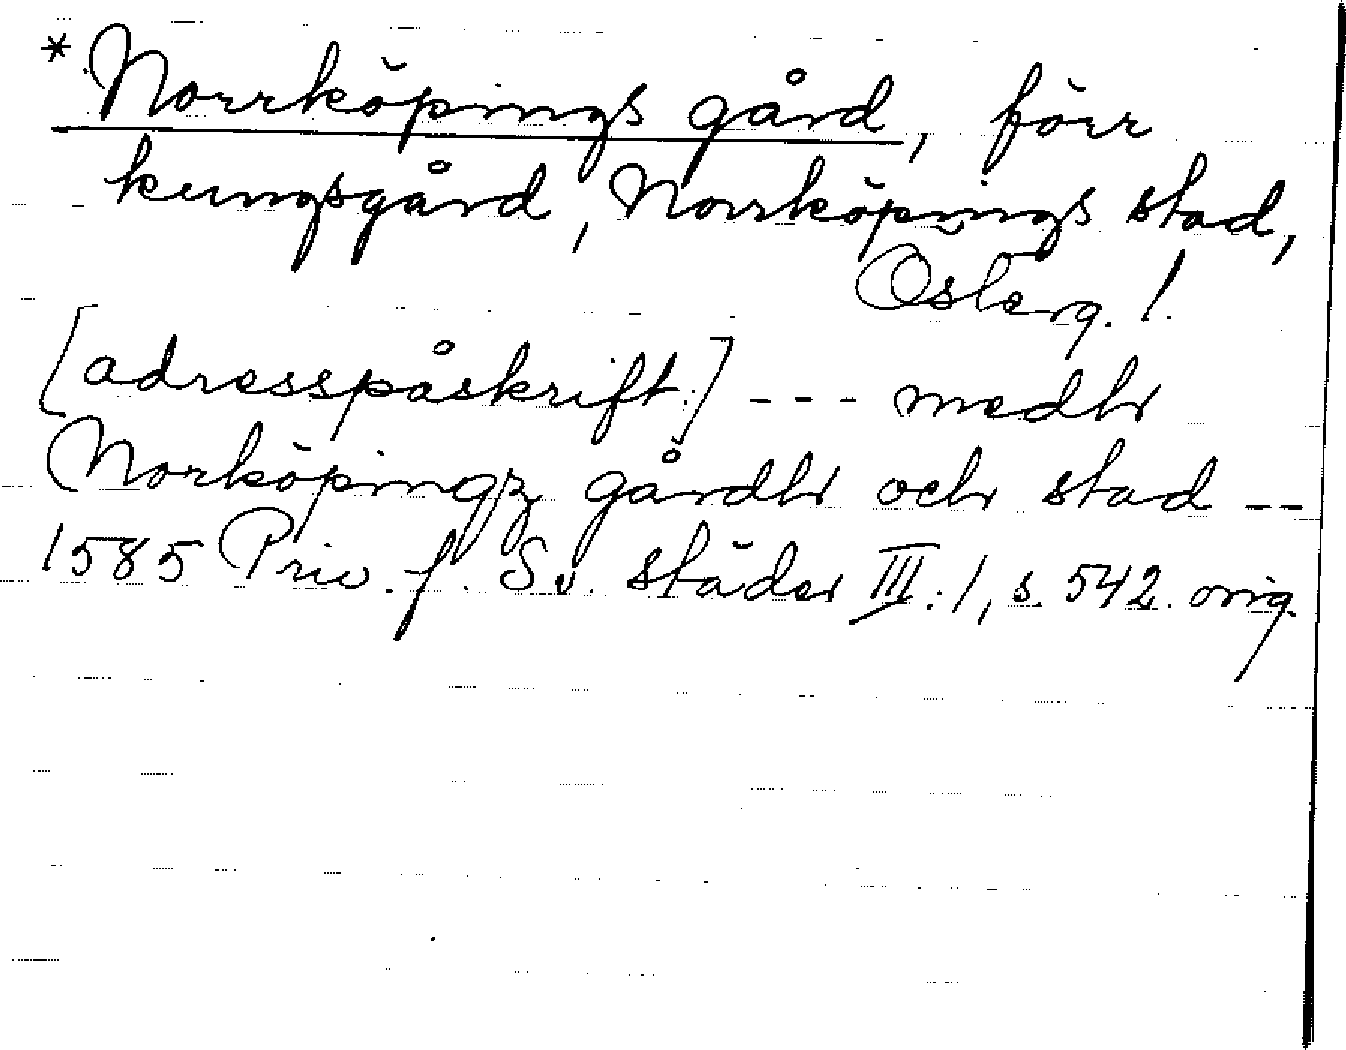 *Norrköpings gård, förr
kungsgård, Norrköpings stad,
Österg. l.
[adresspåskrift:] --- medhr
Norköpingz gårdhr och stad --
1585 Priv. f. Sv. städer III:1, s. 542. orig.